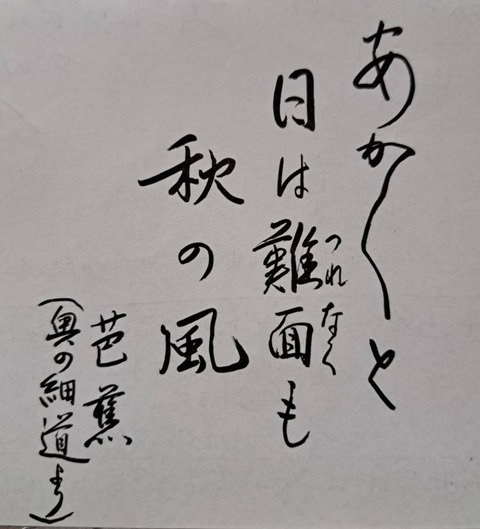 あか〱と
日は難面も
つれなく
秋の風
芭蕉
(奥の細道より)